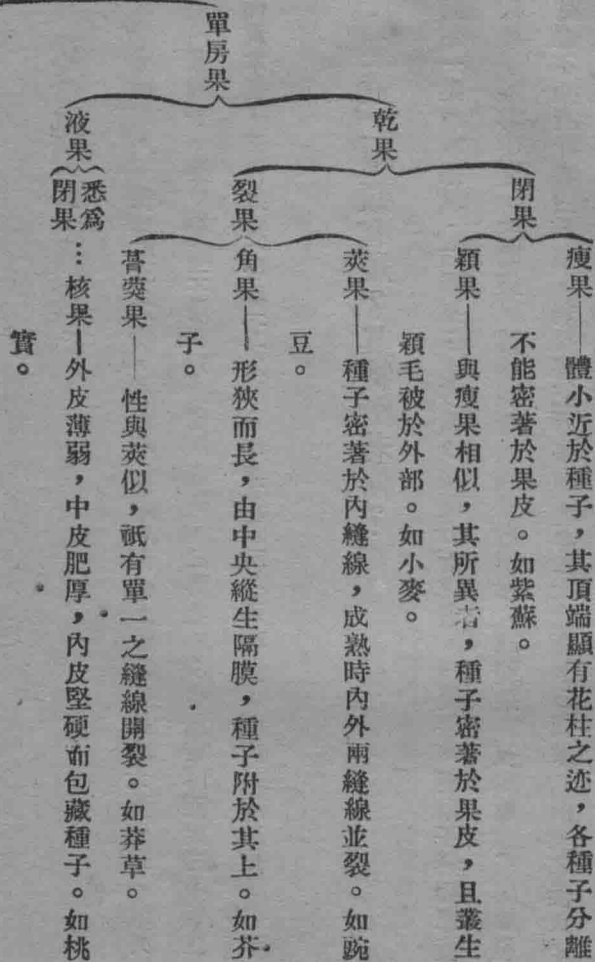 單房果
乾果
閉果
瘦果——體小近於種子，其頂端顯有花柱之迹，各種子分離
不能密著於果皮。如紫蘇。
穎果——與瘦果相似，其所異者，種子密著於果皮，且叢生
穎毛被於外部。如小麥。
裂果
莢果——種子密著於內縫線，成熟時內外兩縫線並裂。如豌
豆。
角果——形狹而長，由中央縱生隔膜，種子附於其上。如芥
子。
蓇葖果——性與莢似，祇有單一之縫線開裂。如莽草。
液果
悉爲
閉果
…核果——外皮薄弱，中皮肥厚，內皮堅硬而包藏種子。如桃
實。